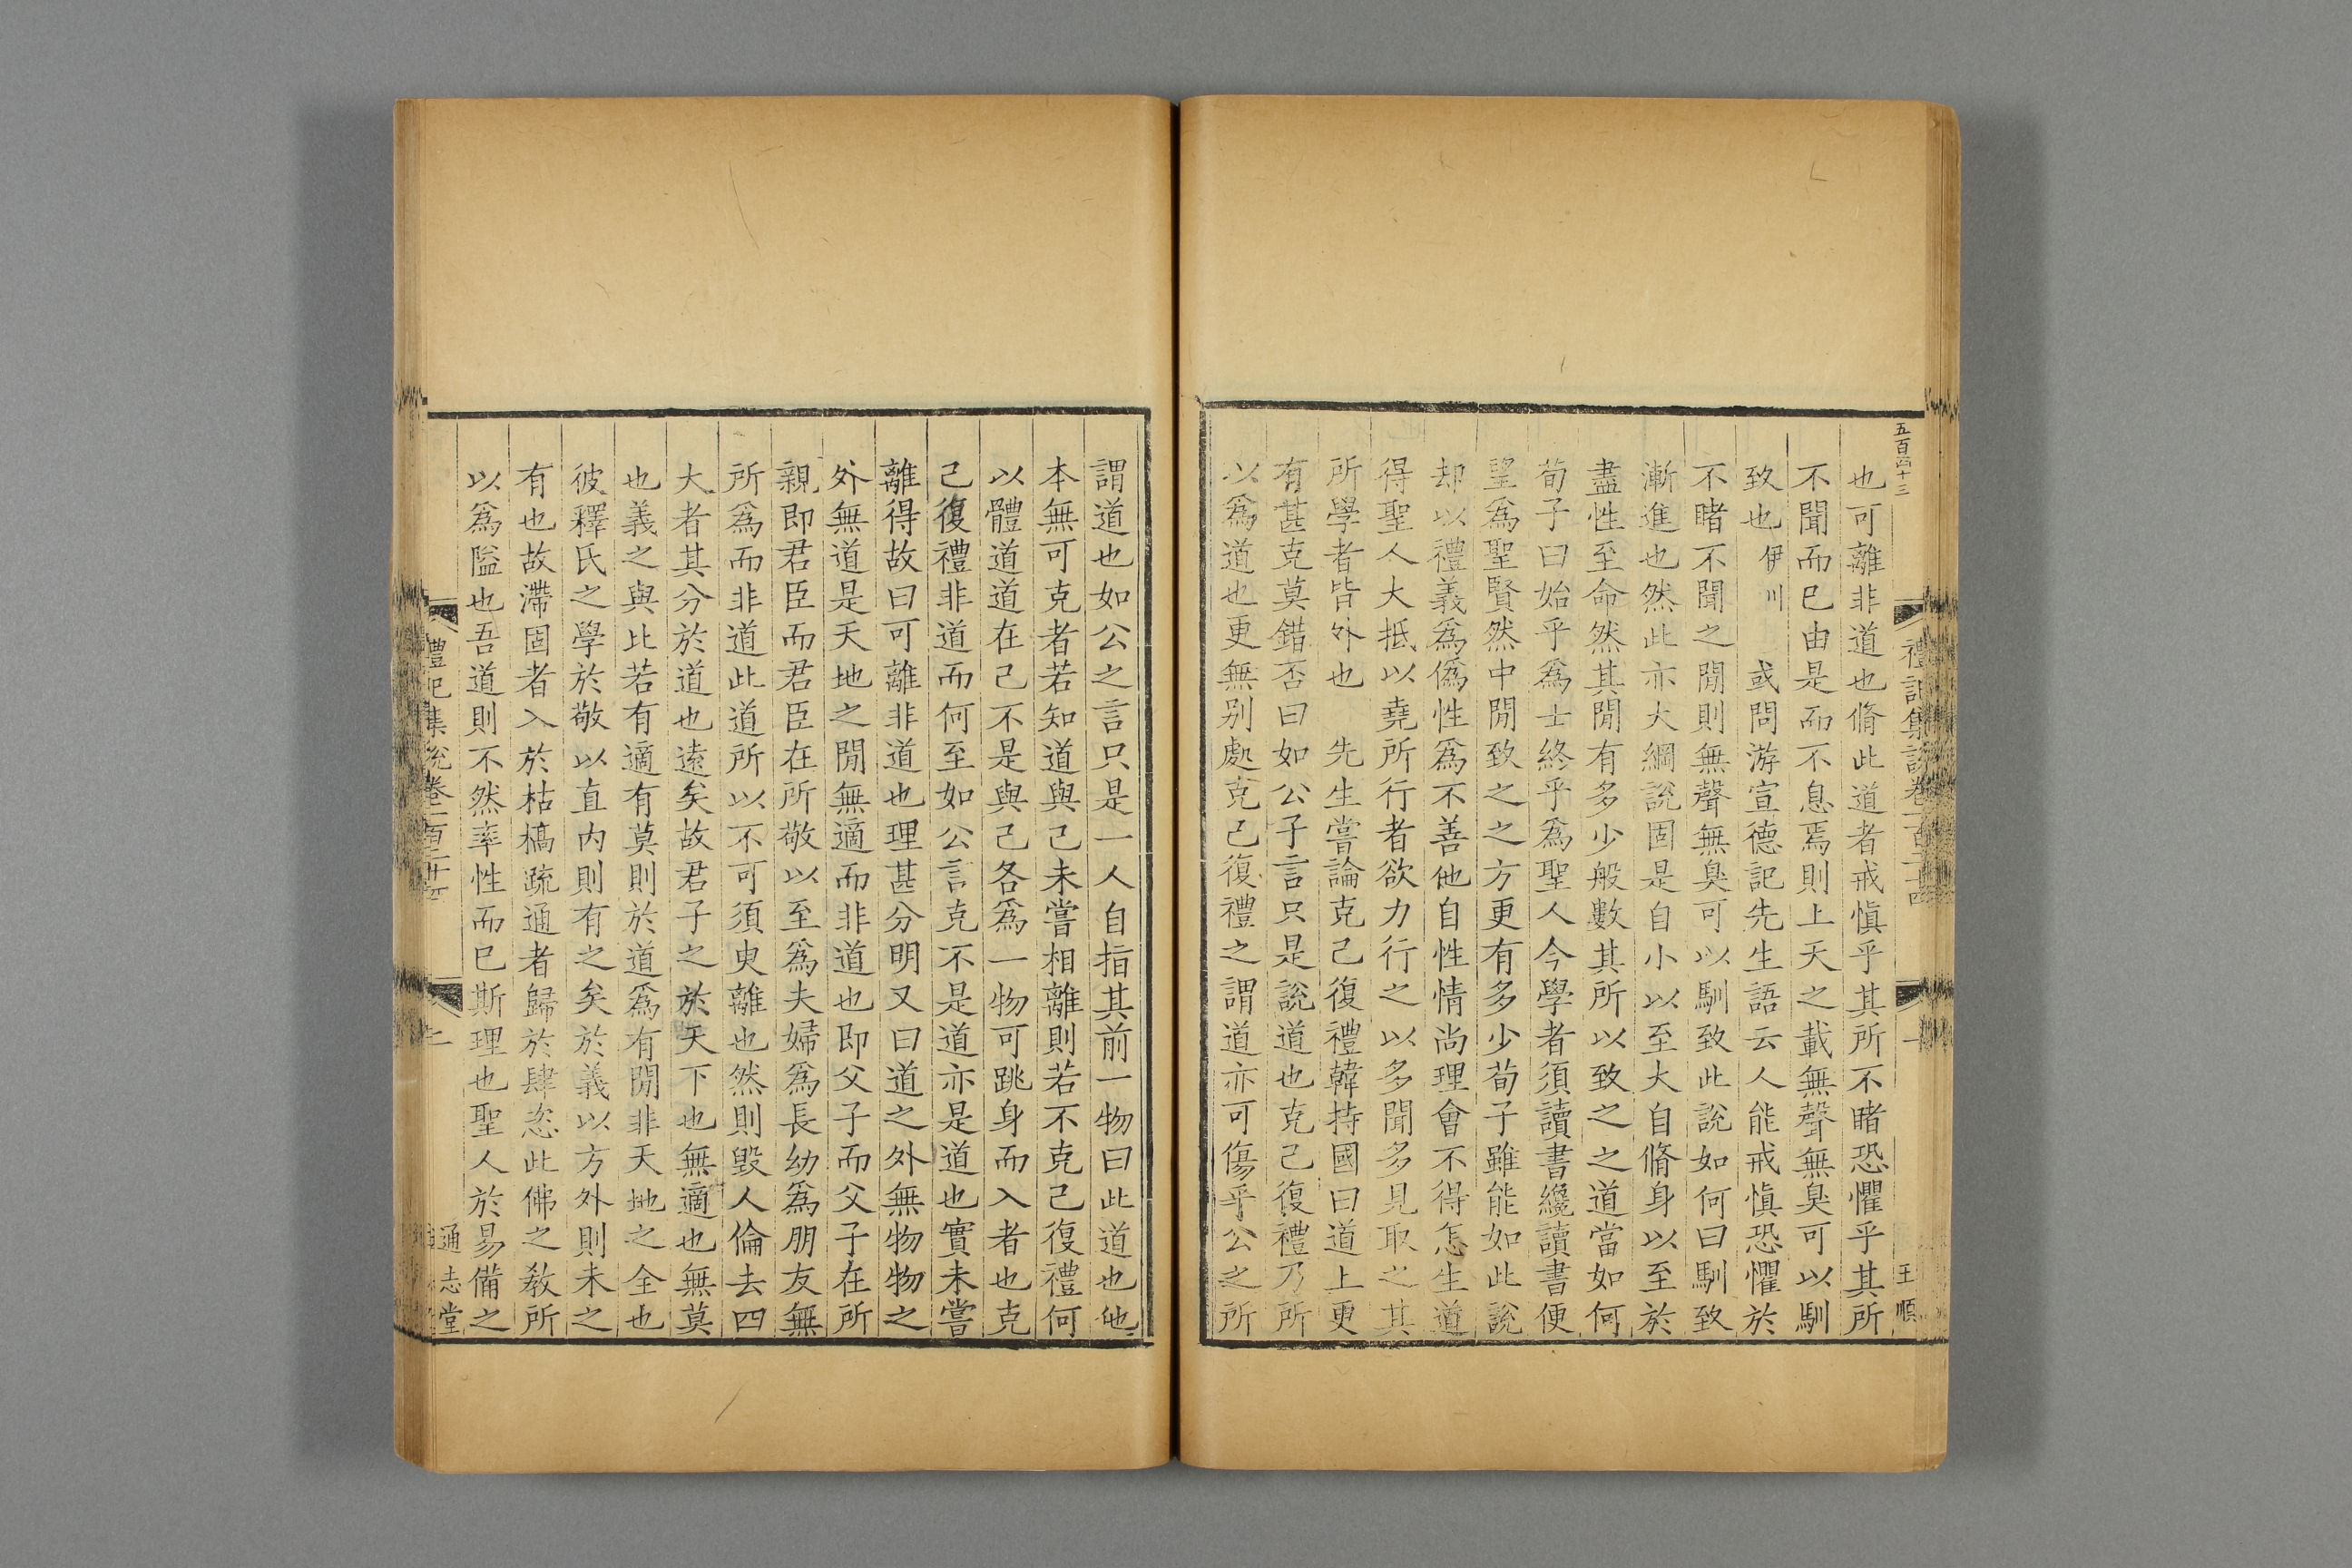 五百四十三
禮記集說卷一百二十四
王順
也可離非道也脩此道者戒愼乎其所不睹恐懼乎其所
不聞而已由是而不息焉則上天之載無聲無臭可以馴
致也伊川　或問游宣德記先生語云人能戒愼恐懼於
不睹不聞之閒則無聲無臭可以馴致此說如何曰馴致
漸進也然此亦大綱說固是自小以至大自脩身以至於
盡性至命然其閒有多少般數其所以致之之道當如何
荀子曰始乎爲士終乎爲聖人今學者須讀書纔讀書便
望爲聖賢然中閒致之之方更有多少荀子雖能如此說
却以禮義爲僞性爲不善他自性情尚理會不得怎生道
得聖人大抵以堯所行者欲力行之以多聞多見取之其
所學者皆外也　先生嘗論克己復禮韓持國曰道上更
有甚克莫錯否曰如公子言只是說道也克己復禮乃所
以爲道也更無别處克己復禮之謂道亦可傷乎公之所
謂道也如公之言只是一人自指其前一物曰此道也他
本無可克者若知道與己未嘗相離則若不克己復禮何
以體道道在己不是與己各爲一物可跳身而入者也克
己復禮非道而何至如公言克不是道亦是道也實未嘗
離得故曰可離非道也理甚分明又曰道之外無物物之
外無道是天地之閒無適而非道也即父子而父子在所
親即君臣而君臣在所敬以至爲夫婦爲長幼爲朋友無
所爲而非道此道所以不可須臾離也然則毀人倫去四
大者其分於道也遠矣故君子之於天下也無適也無莫
也義之與比若有適有莫則於道爲有閒非天地之全也
彼釋氏之學於敬以直内則有之矣於義以方外則未之
有也故滯固者入於枯槁疏通者歸於肆恣此佛之敎所
以爲隘也吾道則不然率性而已斯理也聖人於易備之
禮記集說卷一百二十四
通志堂